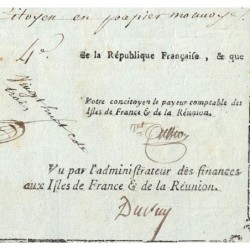 itoyen en papier monnoye
4e.
de la République Française, & que
Votre concitoyen le payeur comptable des
Isles de France & de la Réunion.
Vu par l'administrateur des finances
aux Isles de France & de la Réunion.